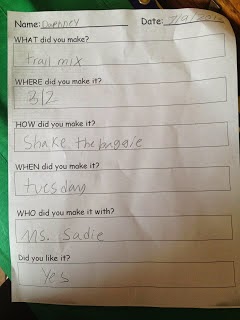 Name: Date:
WHAT did you make?
trail mix
WHERE did you make it?
312
HOW did you make it?
Shake the baggie
WHEN did you make it?
tuesday
WHO did you make it with?
Ms. Sadie
Did you like it?
Yes